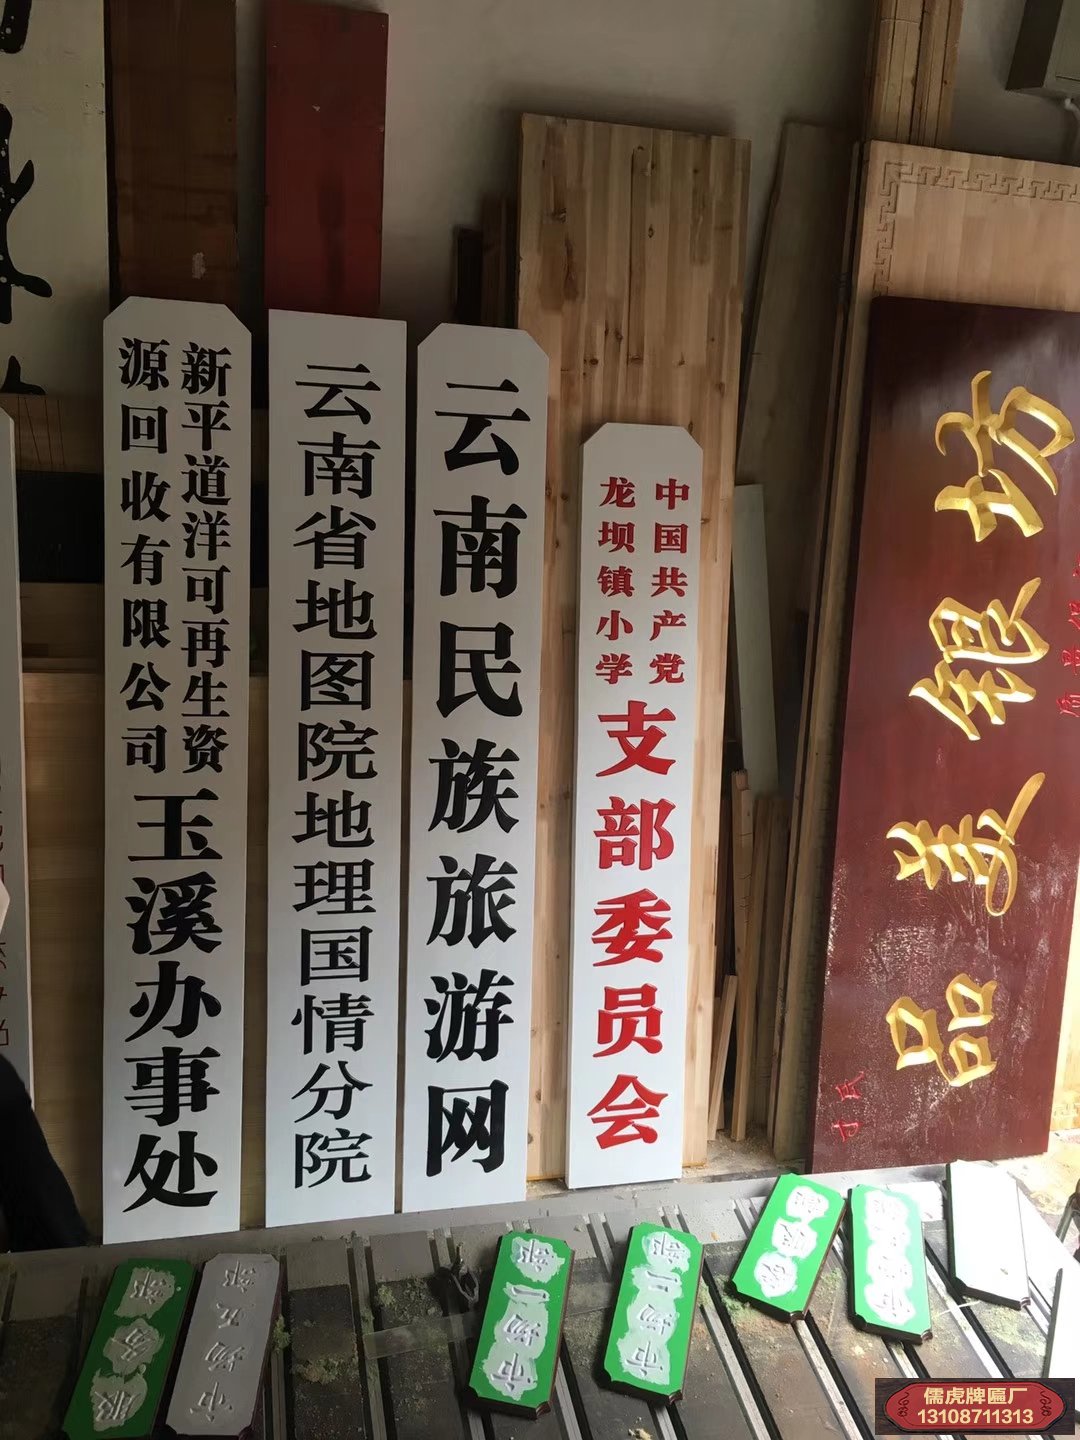 新平道洋可再生资
源回收有限公司
玉溪办事处
云南省地图院地理国情分院
云南民族旅游网
中国共产党
龙坝镇小学
支部委员会
品美银坊
服务部
市场五部
市场一部
市场二部
儒虎牌匾厂
13108711313